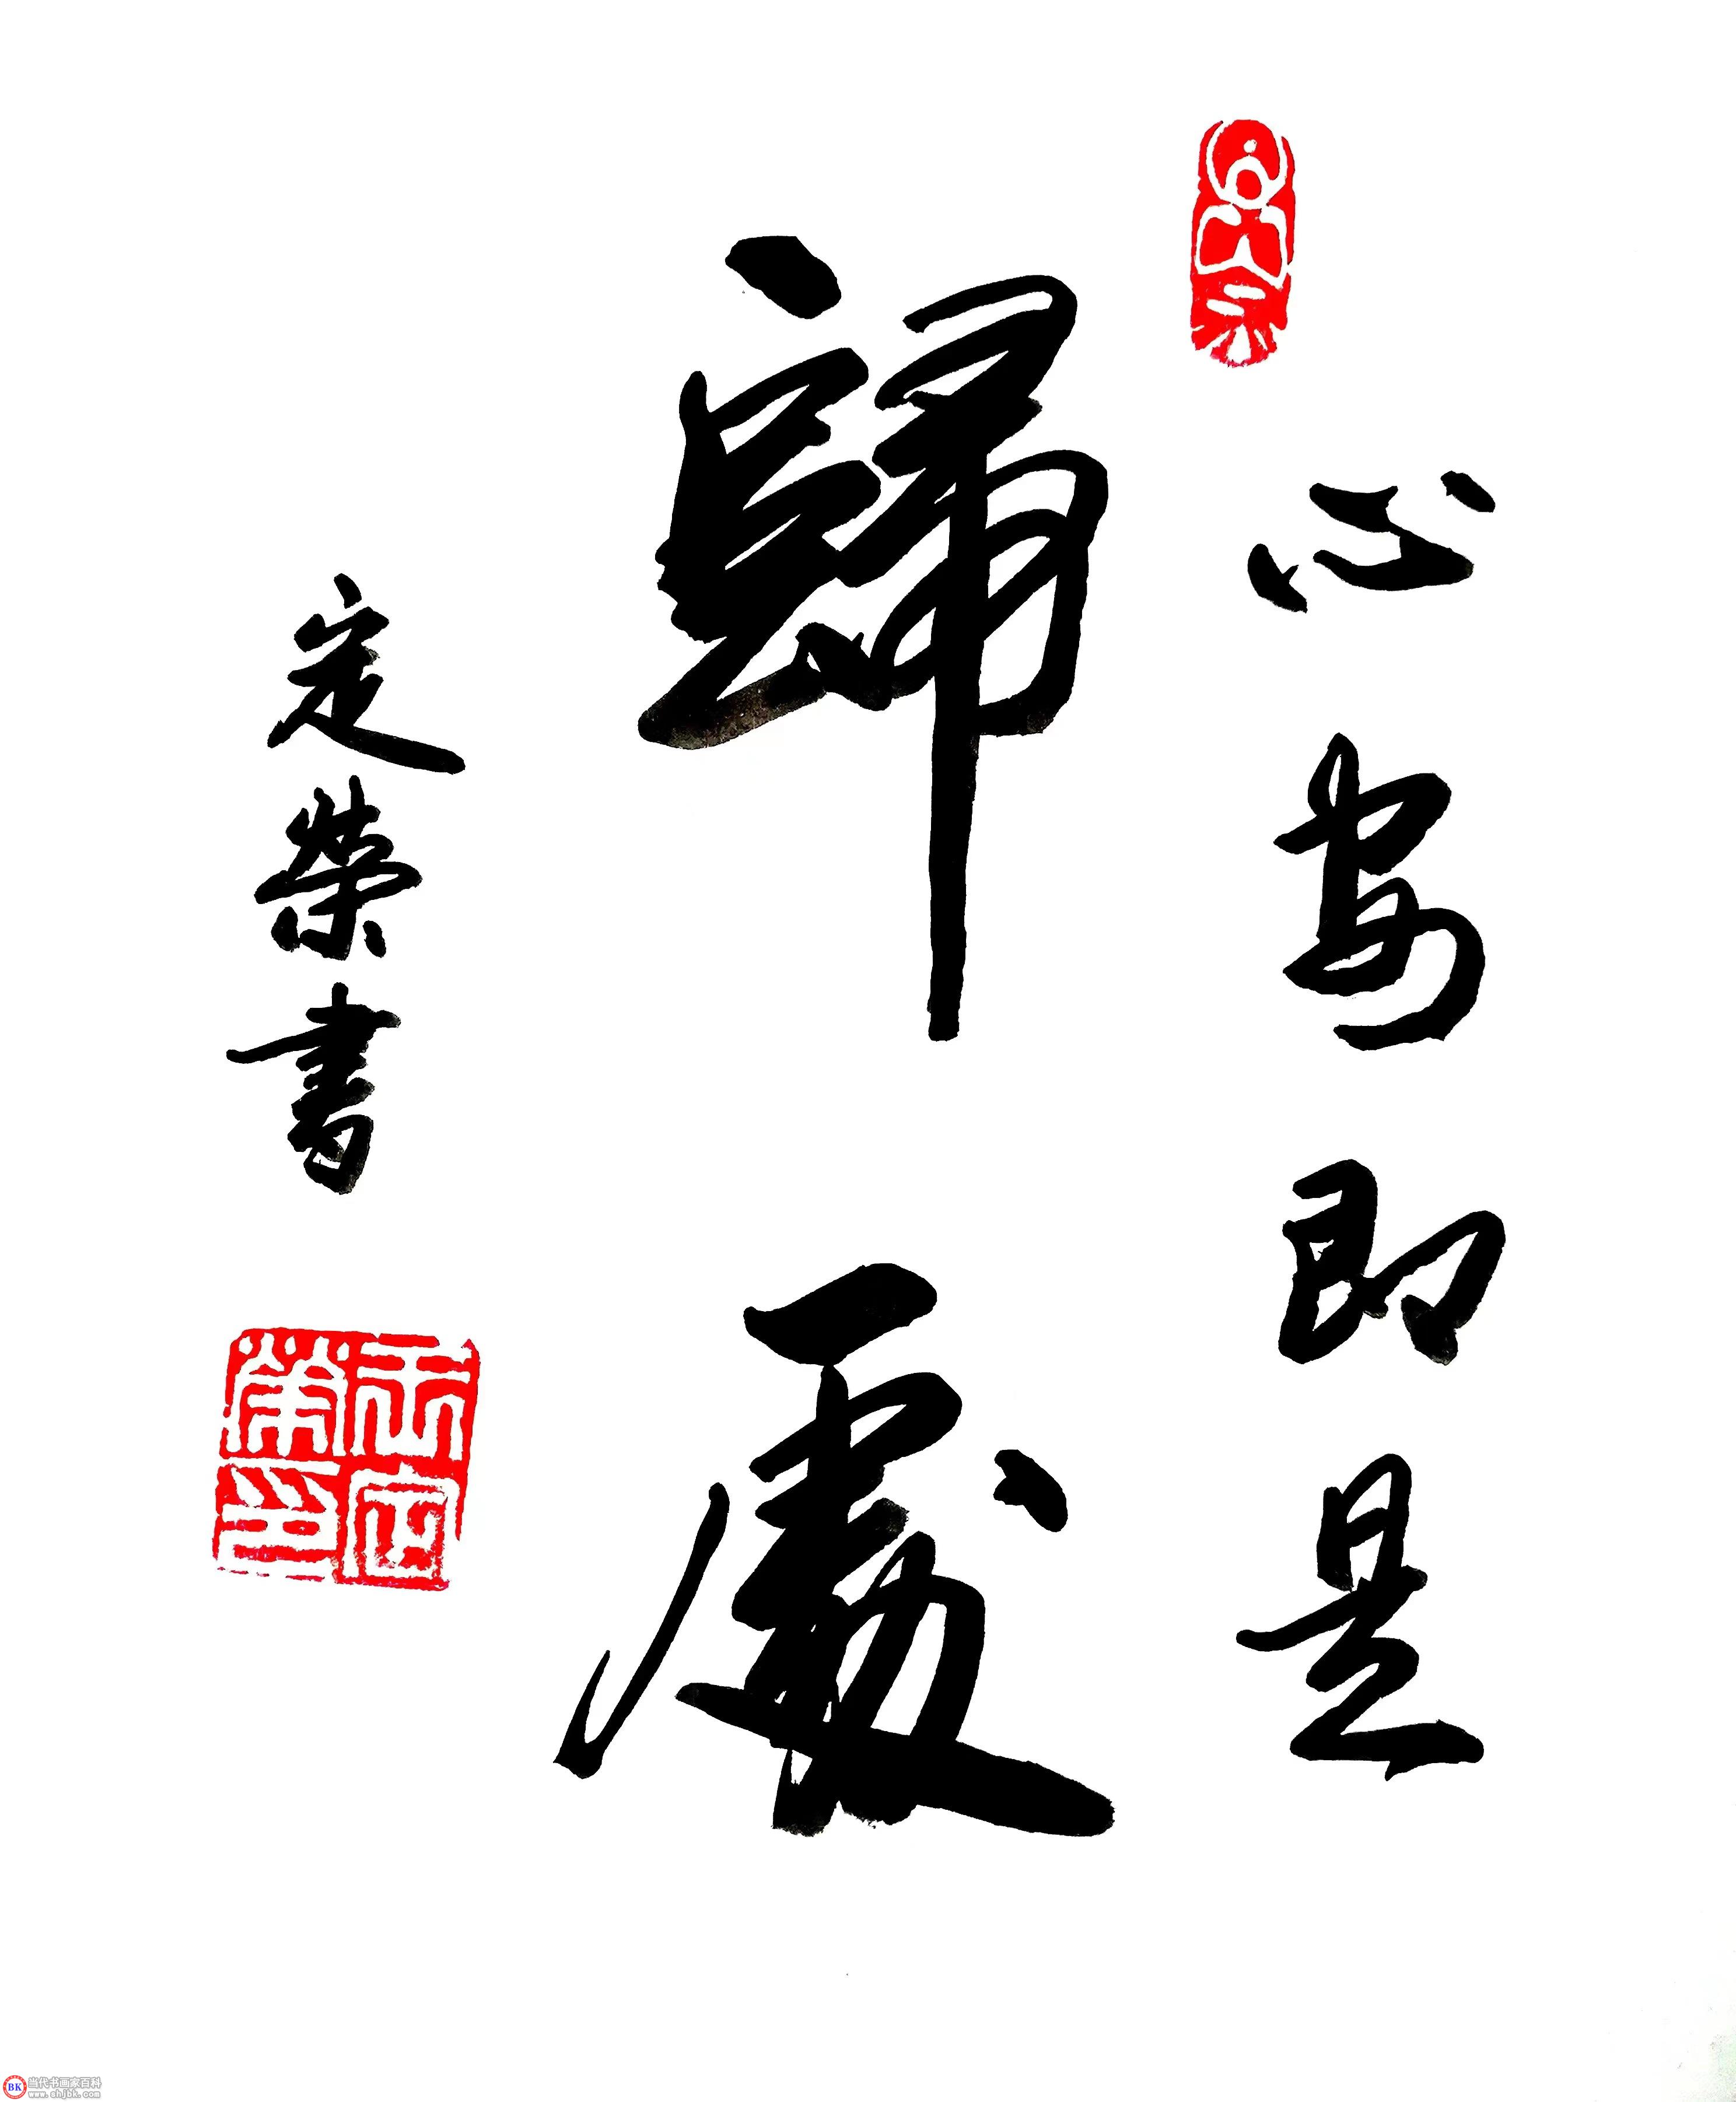 心安即是
歸處
定榮書
BK 当代书画家百科
www.shjbk.com